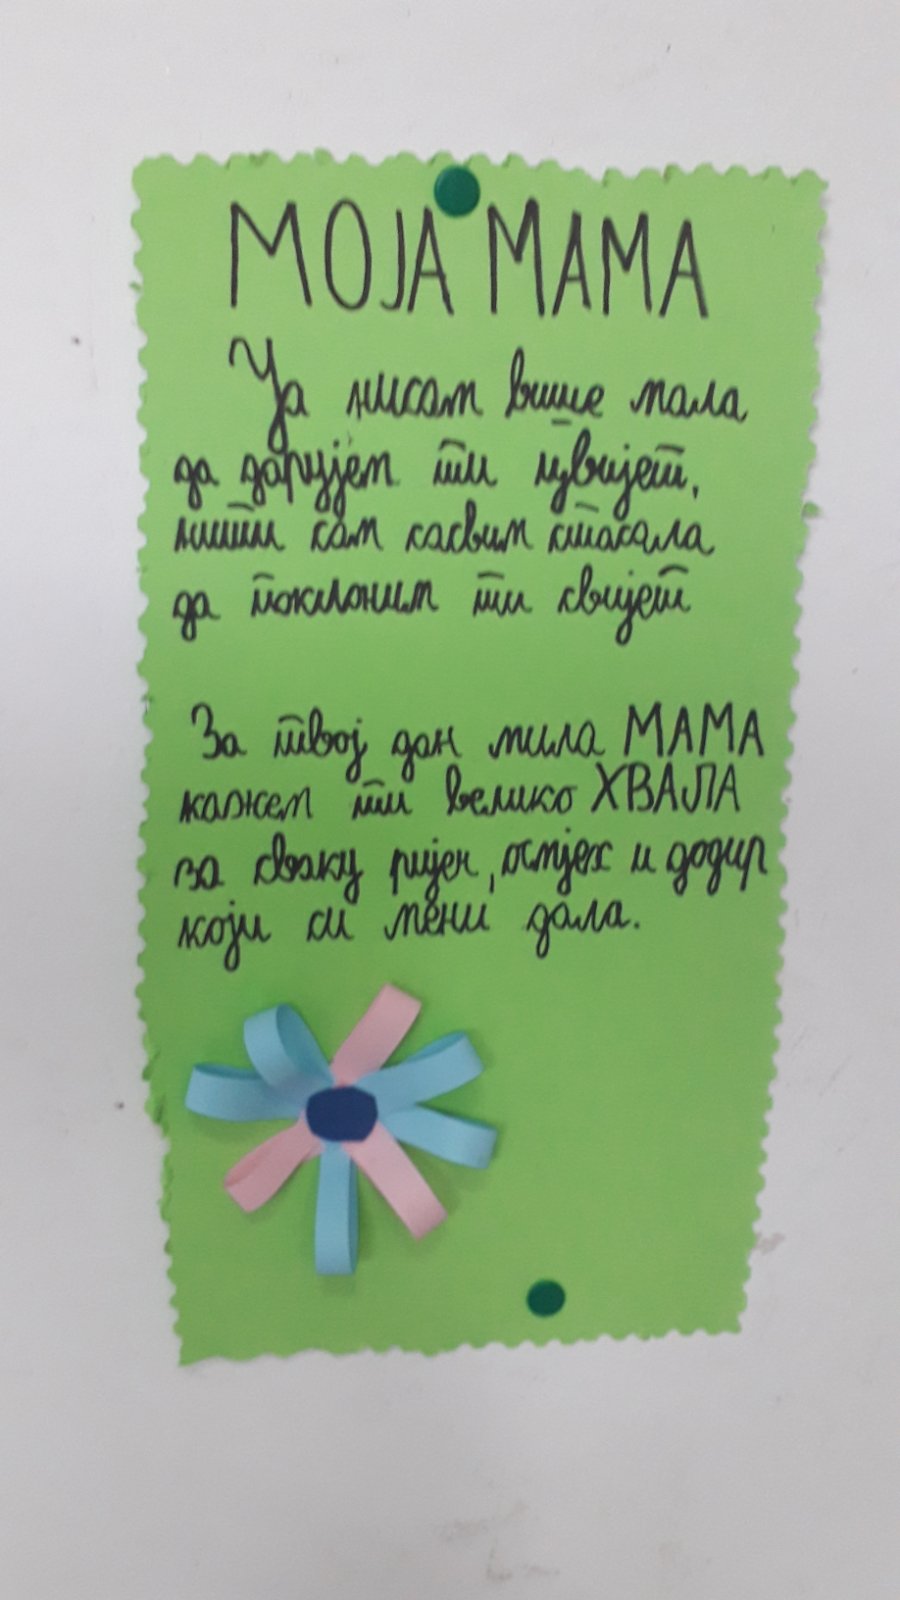 МОЈА МАМА
Ја нисам више мала
да дарујем ти цвијет,
нити сам сасвим стасала
да поклоним ти свијет
За твој дан мила МАМА
кажем ти велико ХВАЛА
за сваку ријеч, осмјех и додир
који си мени дала.